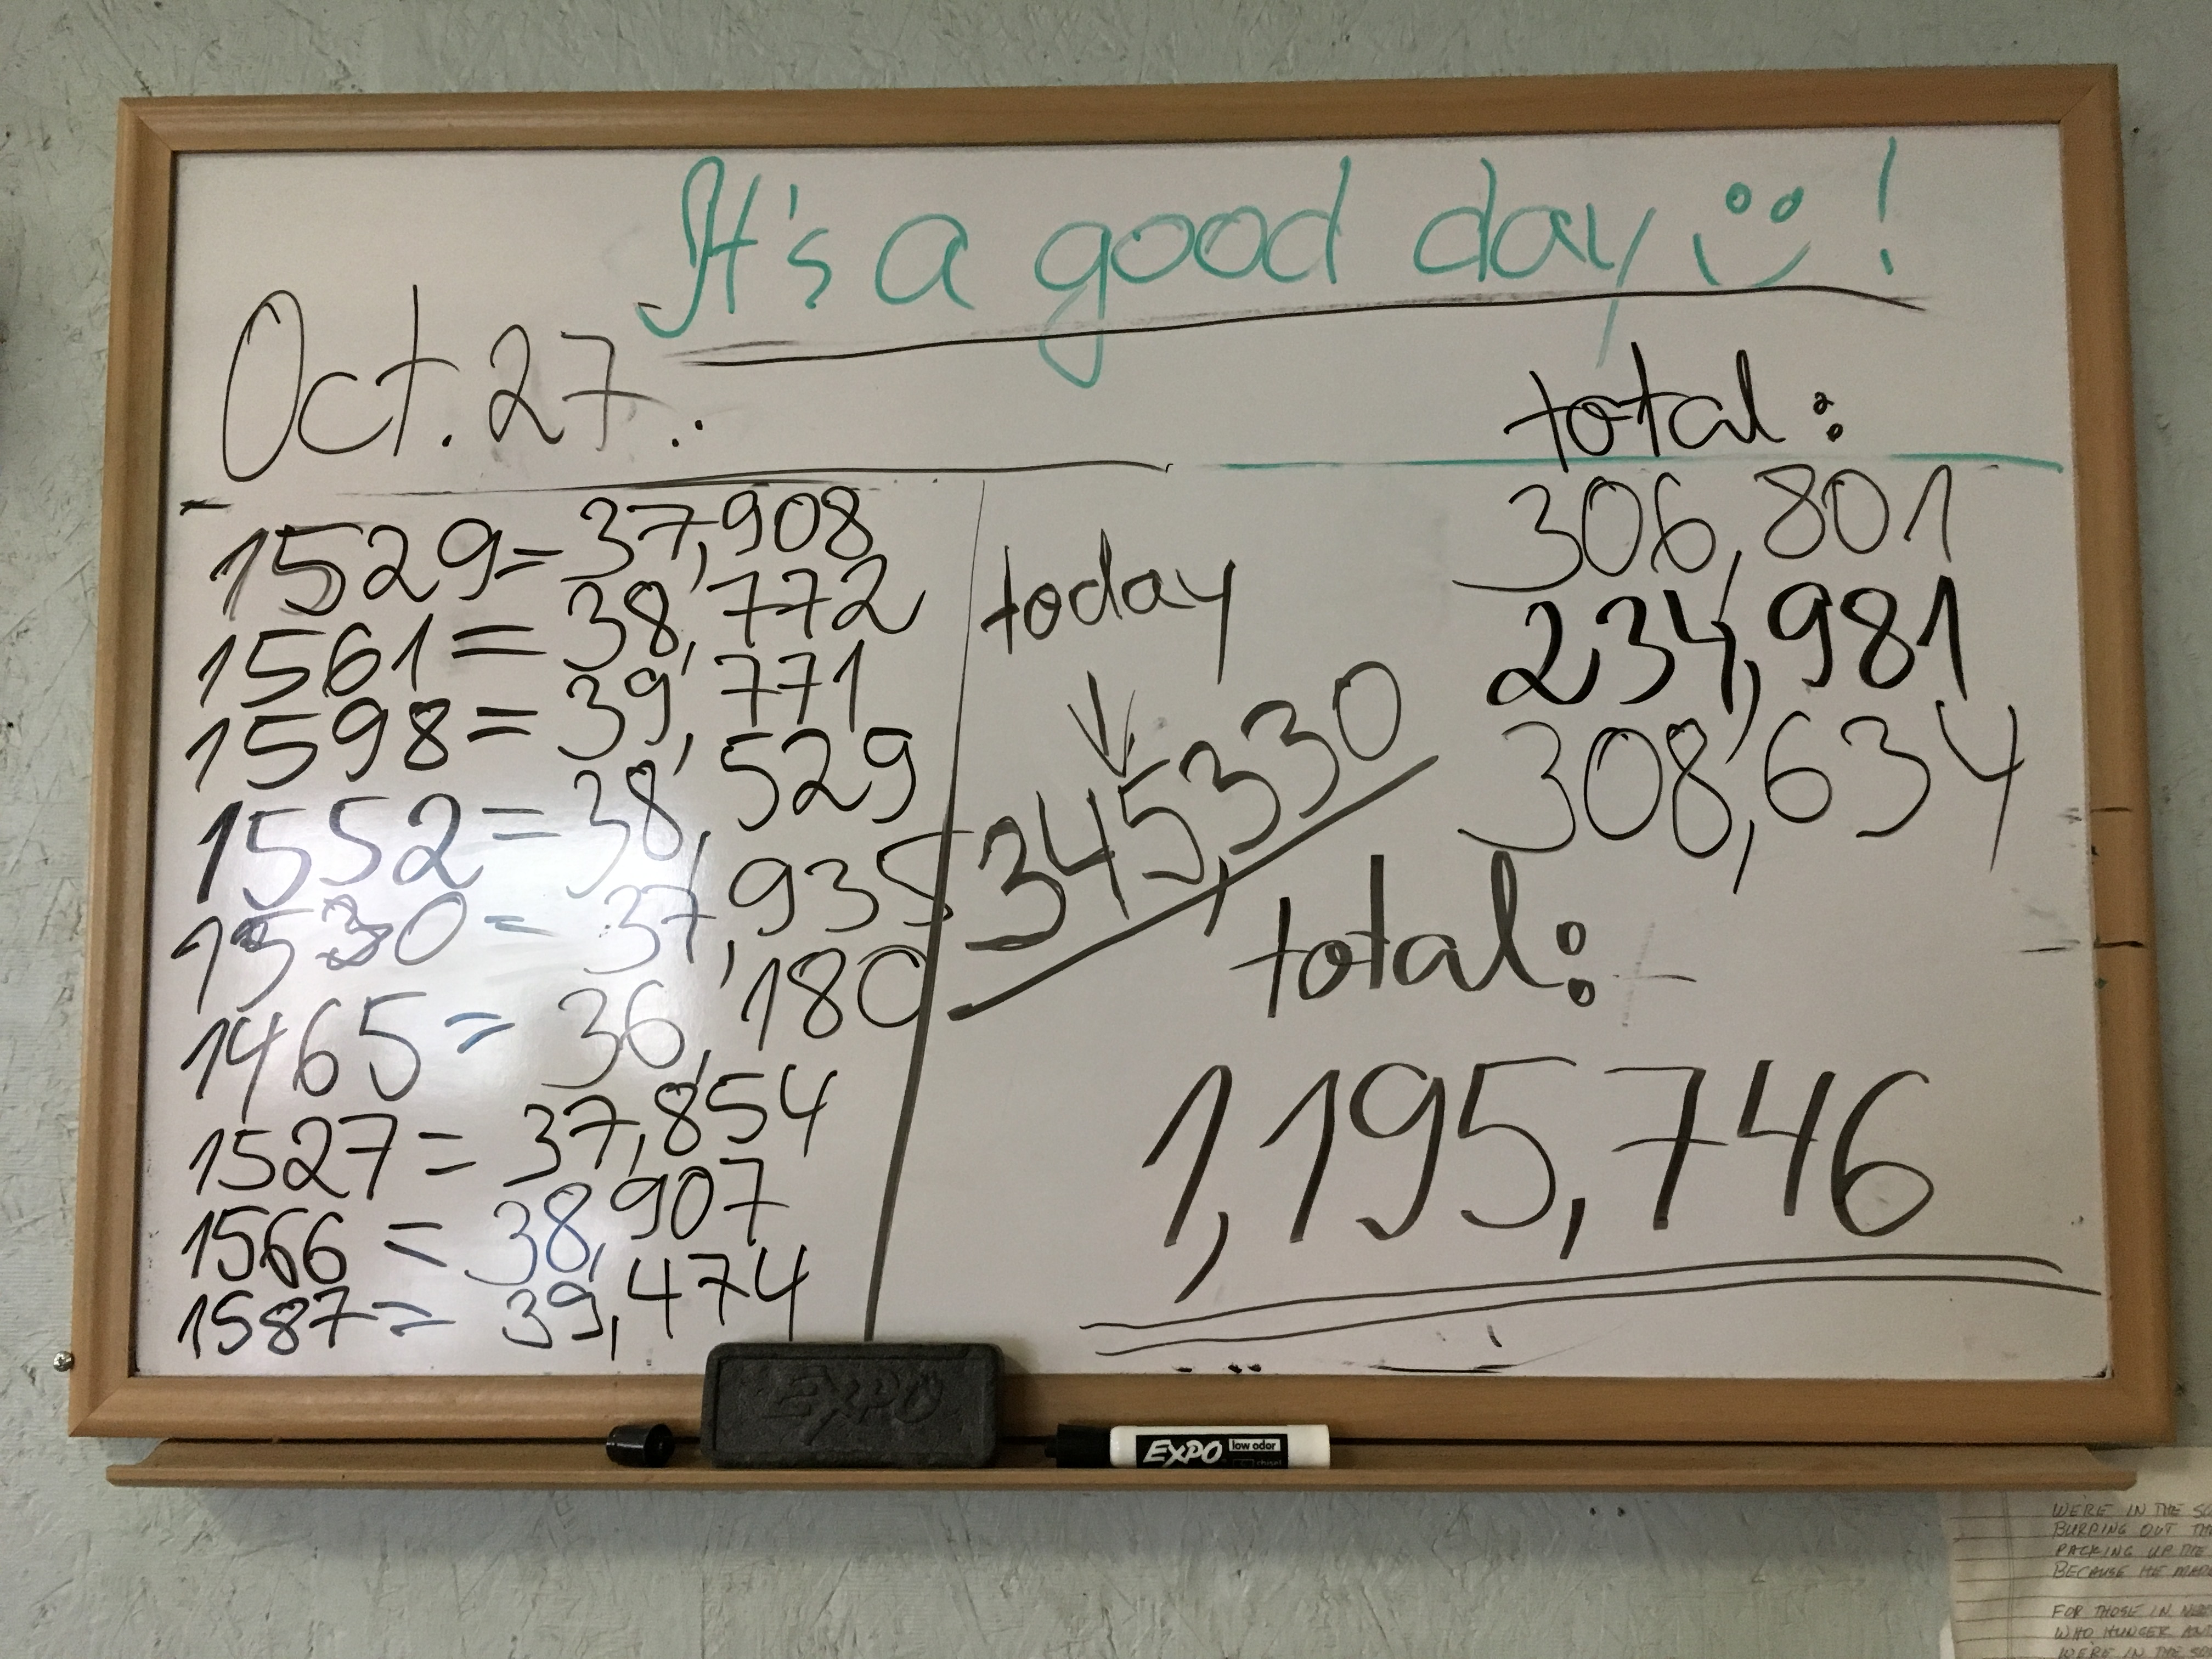 It's a good day !
Oct. 27..
1529 = 37,908
1561 = 38,772
1598 = 39,771
1552 = 38,529
1530 = 37,935
1465 = 36,180
1527 = 37,854
1566 = 38,907
1587 = 39,474
today
345,330
total:
306,801
234,981
308,634
total:
1,195,746
EXPO
EXPO low odor
WE'RE IN THE
BURPING OUT THE
PACKING UP THE
BECAUSE HE
FOR THOSE IN
WHO HUNGER
WE'RE IN THE